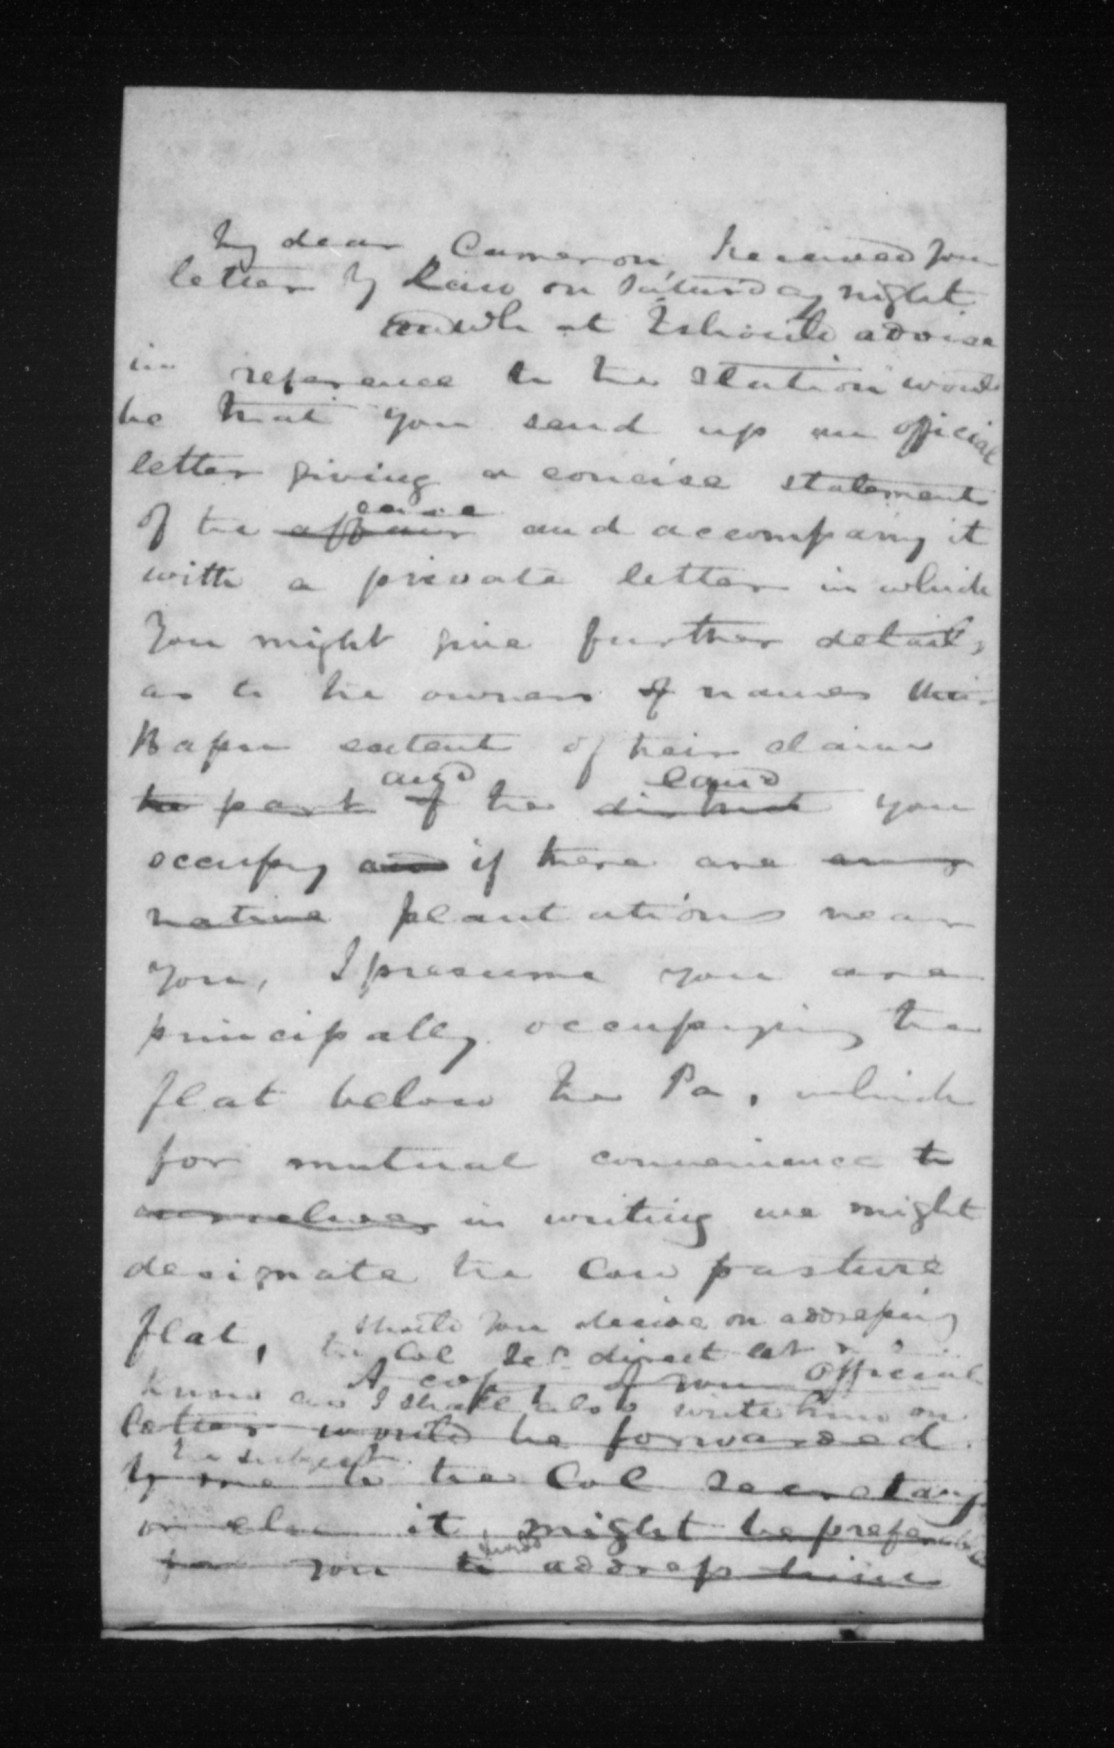 My dear Cameron, Received your
letter by on Saturday night
what I should advise
in reference to the station would
be that you send up an official
letter giving a concise statement
of the affair case and accompany it
with a private letter in which
You might give further details,
as to the owners & names their
Hapu extent of their claims
the part of and the district land you
occupy and if there are any
native plantations near
you, I presume you are
principally occupying the
flat below the Pa, which
for mutual convenience to
ourselves in writing we might
designate the Cow pasture
flat, should you decide on addressing
the Col Secy direct let
A copy of your official
know as I shall also write him on
letter would be forwarded
the subject
by me to the Col Secretary
or else it might be preferable
for you to address him